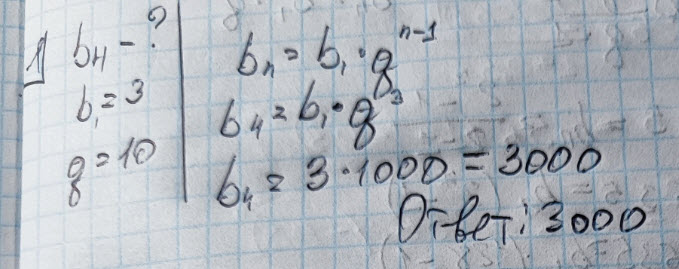 1) b₄ - ?
b₁ = 3
q = 10
bₙ = b₁ · qⁿ⁻¹
b₄ = b₁ · q³
b₄ = 3 · 1000 = 3000
Ответ: 3000